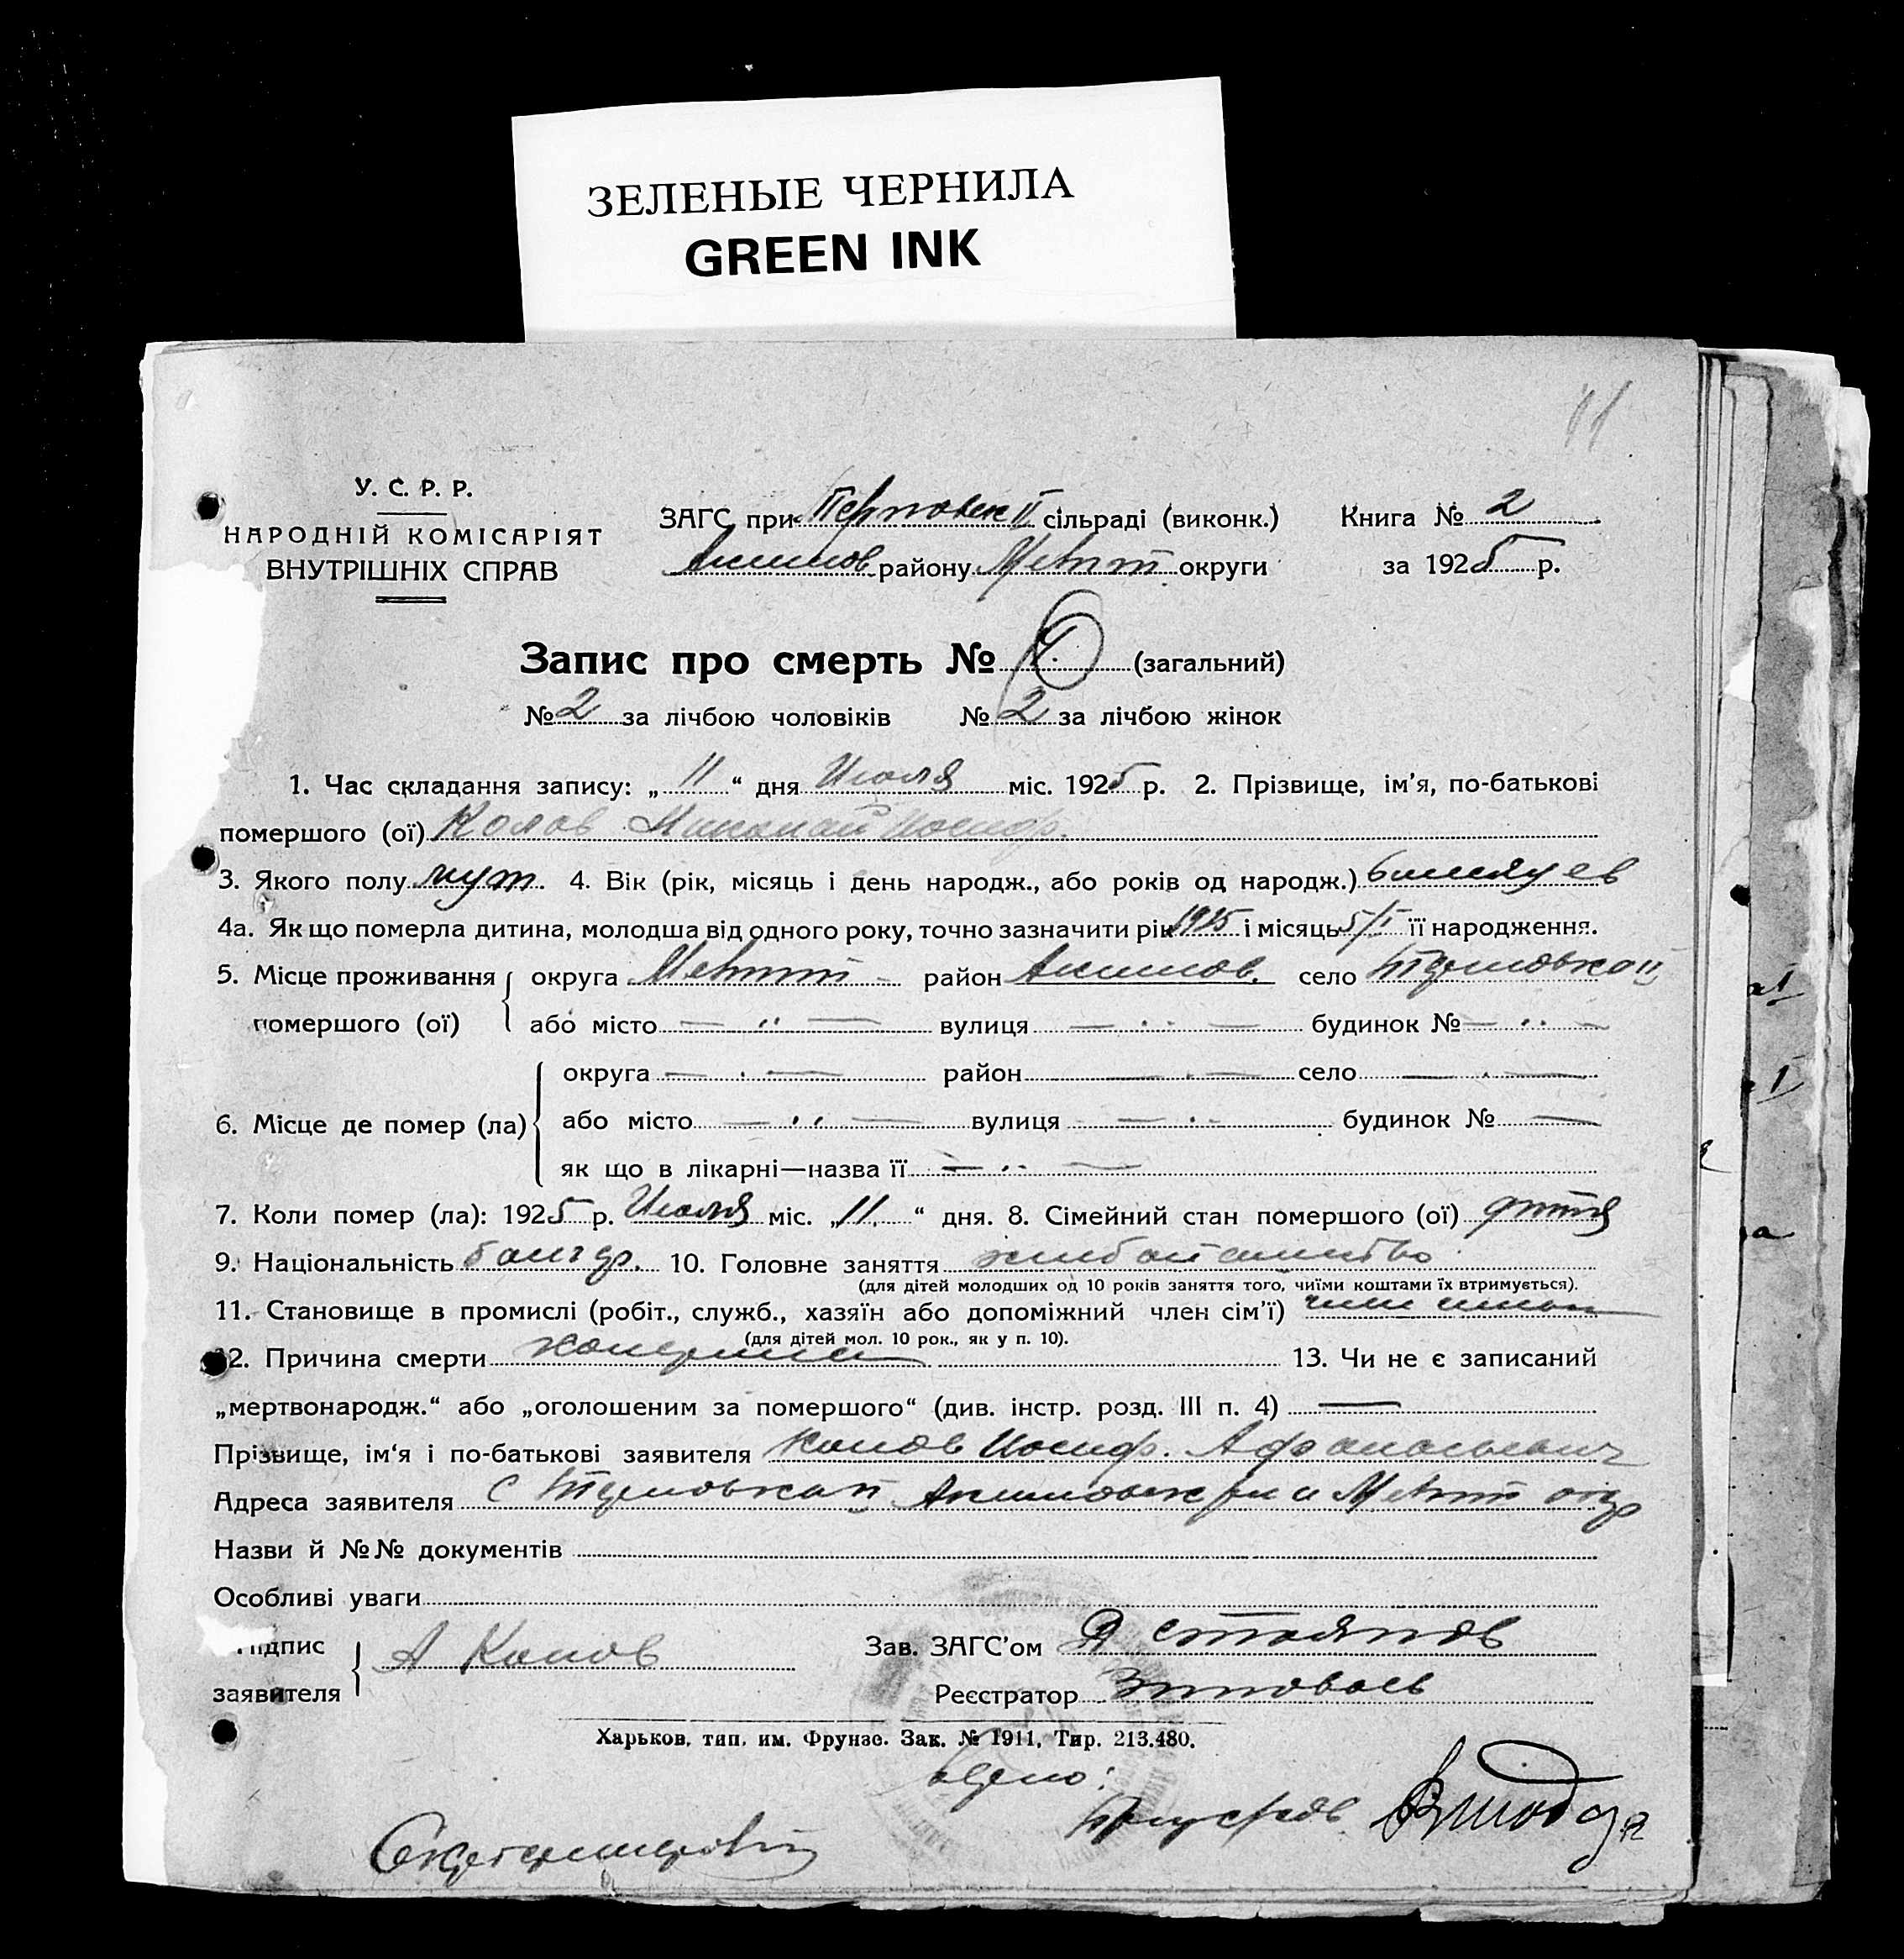 ЗЕЛЕНЫЕ ЧЕРНИЛА
GREEN INK
У. С. Р. Р.
НАРОДНІЙ КОМІСАРІЯТ
ВНУТРІШНІХ СПРАВ
ЗАГС при сільраді (виконк.) Книга № 2
Акимов району Меліт округи за 1925 р.
Запис про смерть № (загальний)
№ 2 за лічбою чоловіків № 2 за лічбою жінок
1. Час складання запису: „ 11 “ дня Июля міс. 1925 р. 2. Прізвище, ім'я, по-батькові
помершого (ої) Николай Иосиф.
3. Якого полу муж. 4. Вік (рік, місяць і день народж., або років од народж.) 6 месяцев
4а. Як що померла дитина, молодша від одного року, точно зазначити рік 1925 і місяць 5/I її народження.
5. Місце проживання округа Меліт район Акимов. село II
помершого (ої) або місто — „ — вулиця — „ — будинок № — „ —
округа — „ — район — „ — село — „ —
6. Місце де помер (ла) або місто — „ — вулиця — „ — будинок № —
як що в лікарні—назва її — „ —
7. Коли помер (ла): 1925 р. Июля міс. „ 11. “ дня. 8. Сімейний стан помершого (ої) дитя
9. Національність болгар. 10. Головне заняття
(для дітей молодших од 10 років заняття того, чиїми коштами їх втримується).
11. Становище в промислі (робіт., служб., хазяїн або допоміжний член сім'ї)
(для дітей мол. 10 рок., як у п. 10).
12. Причина смерти 13. Чи не є записаний
„мертвонародж.“ або „оголошеним за помершого“ (див. інстр. розд. III п. 4) —
Прізвище, ім'я і по-батькові заявителя Иосиф. Афанасьевич
Адреса заявителя с II Акимовск р-на Меліт окр
Назви й №№ документів
Особливі уваги
Підпис А Зав. ЗАГС'ом Стоянов
заявителя Реєстратор
Харьков, тип. им. Фрунзе. Зак. № 1911. Тир. 213.480.